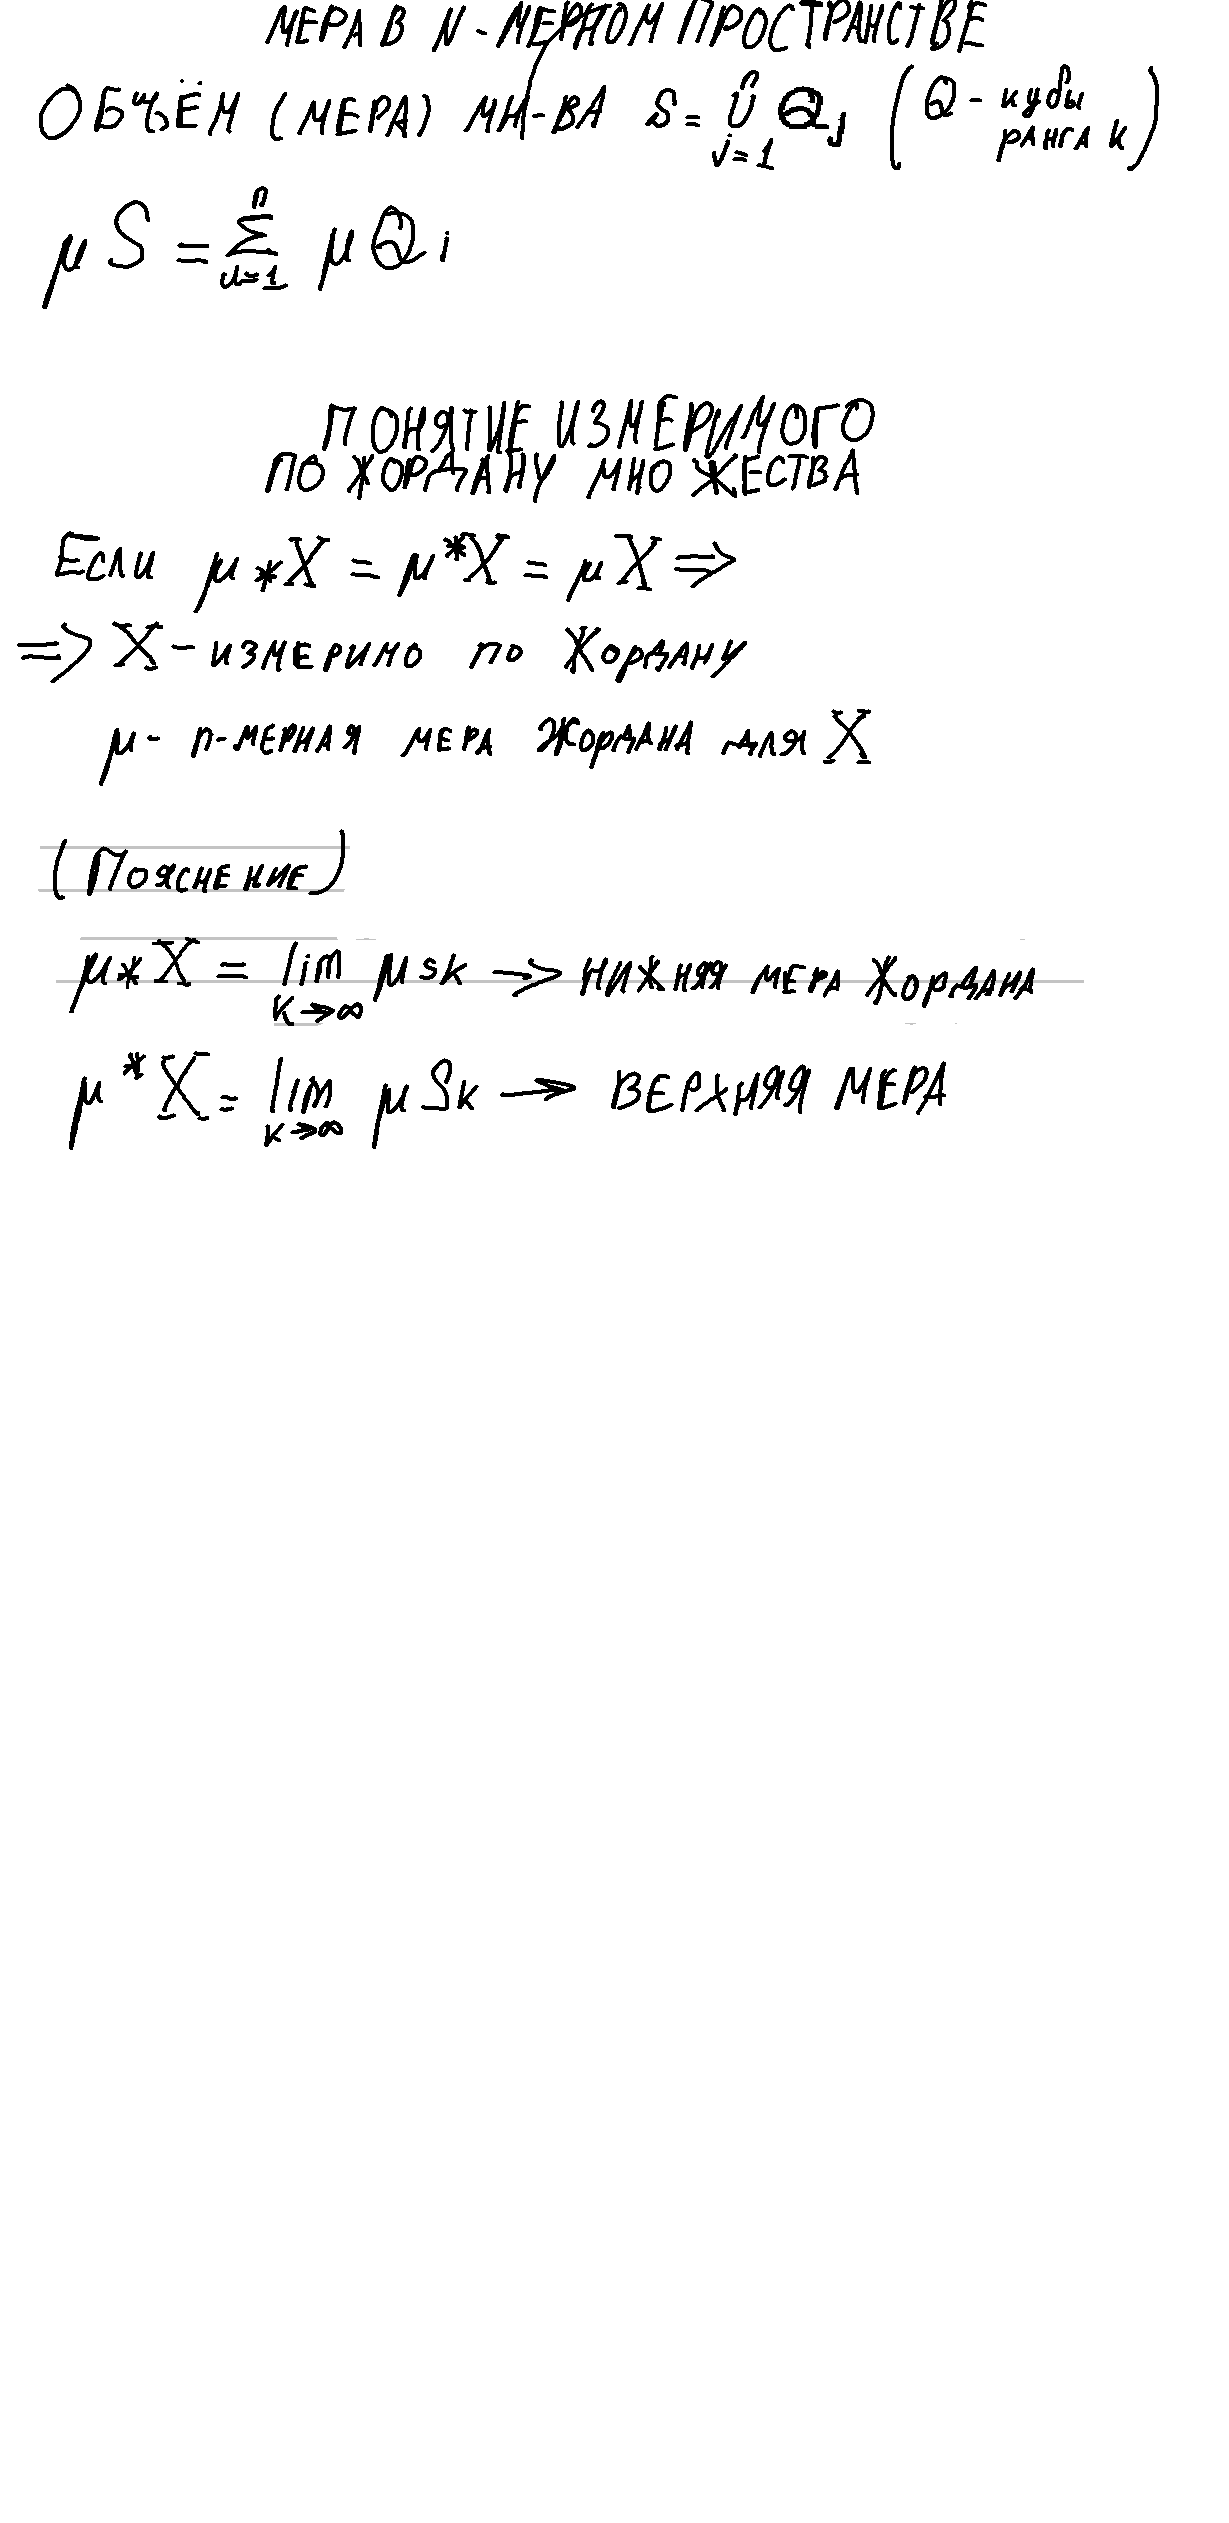 МЕРА В N-МЕРНОМ ПРОСТРАНСТВЕ
ОБЪЁМ (МЕРА) МН-ВА S = ∪_{j=1}^{n} Q_j (Q - кубы ранга k)
μS = Σ_{j=1}^{n} μQ_i
ПОНЯТИЕ ИЗМЕРИМОГО
ПО ЖОРДАНУ МНОЖЕСТВА
Если μ_*X = μ^*X = μX ⇒
⇒ X - измеримо по Жордану
μ - n-мерная мера Жордана для X
(Пояснение)
μ_*X = lim_{k→∞} μsk → нижняя мера Жордана
μ^*X = lim_{k→∞} μSk → ВЕРХНЯЯ МЕРА